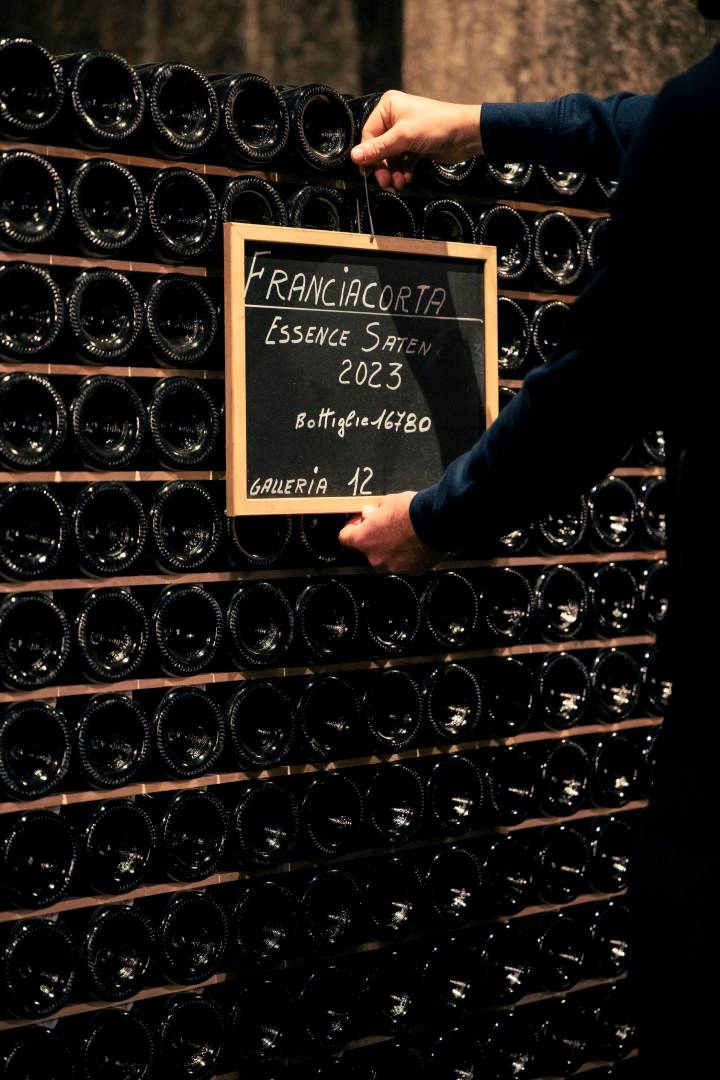 FRANCIACORTA
ESSENCE SATEN
2023
Bottiglie 16780
GALLERIA 12